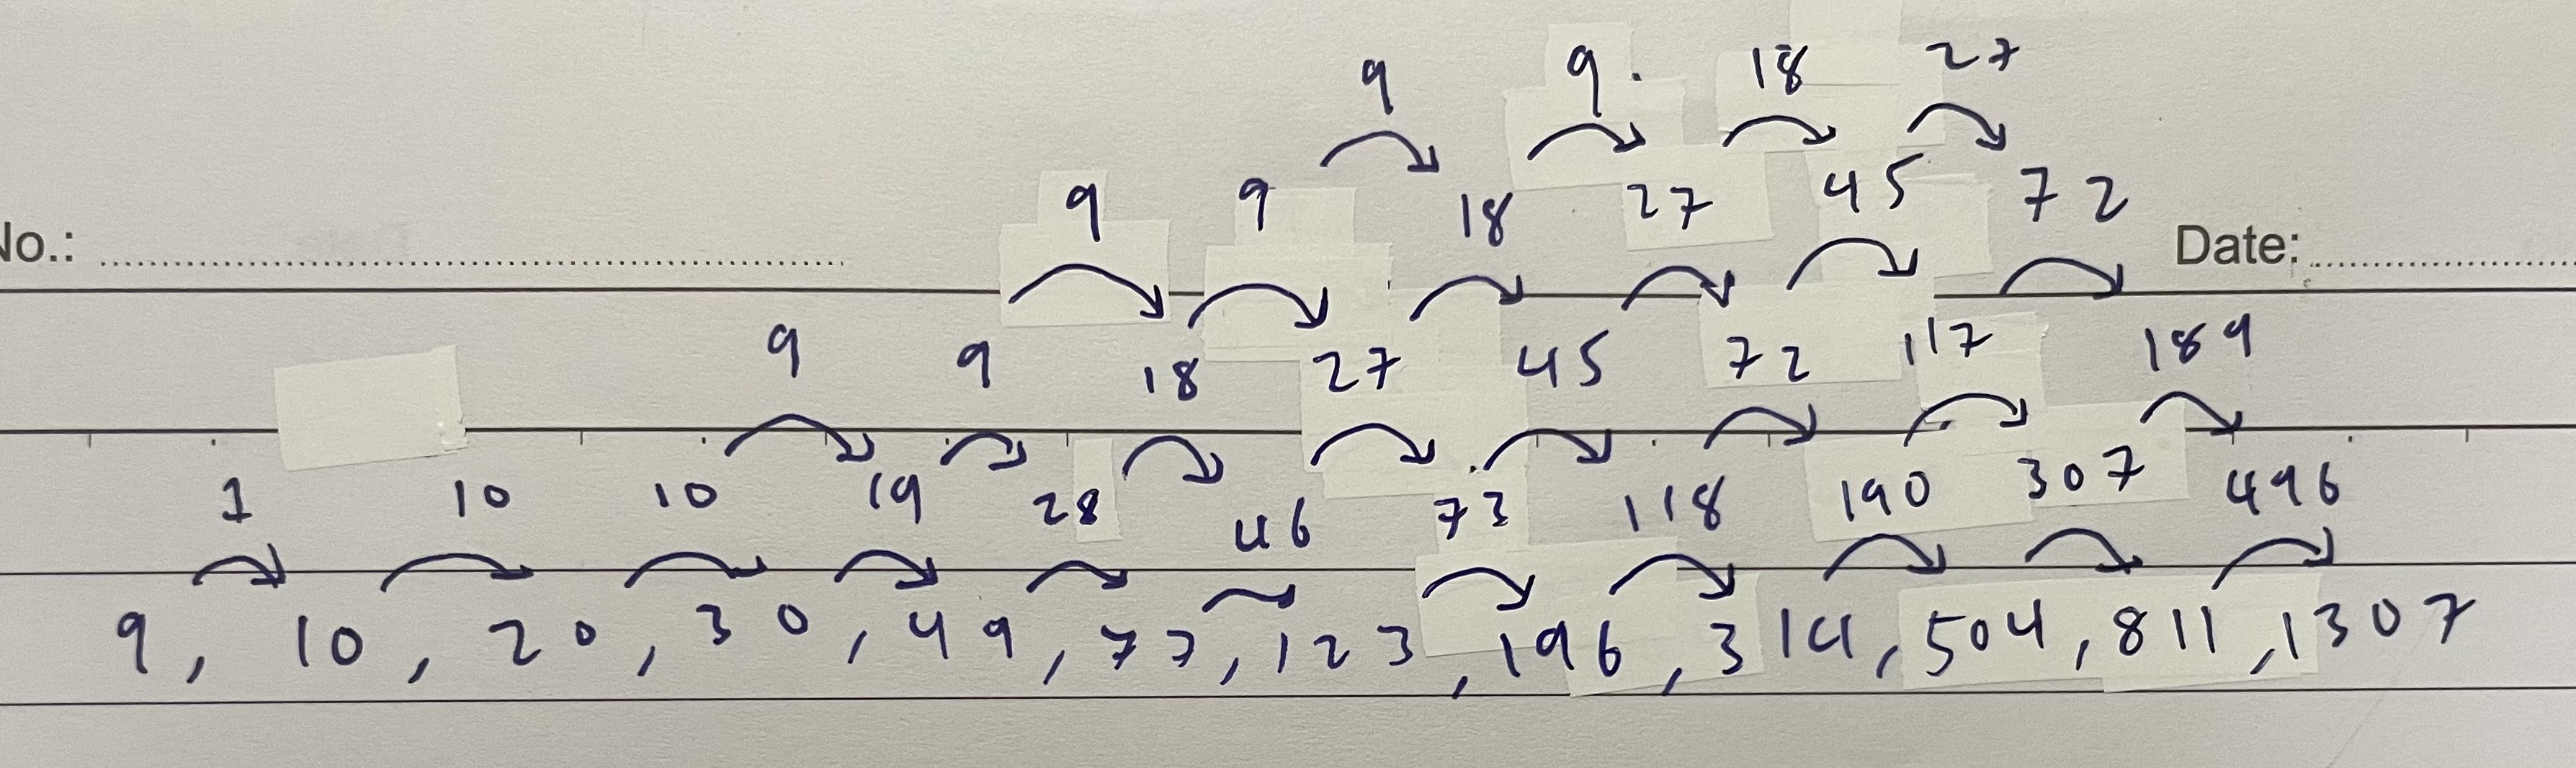 9 9. 18 27
9 9 18 27 45 72
No.: Date:
9 9 18 27 45 72 117 189
1 10 10 19 28 46 73 118 190 307 496
9, 10, 20, 30, 49, 77, 123, 196, 314, 504, 811, 1307